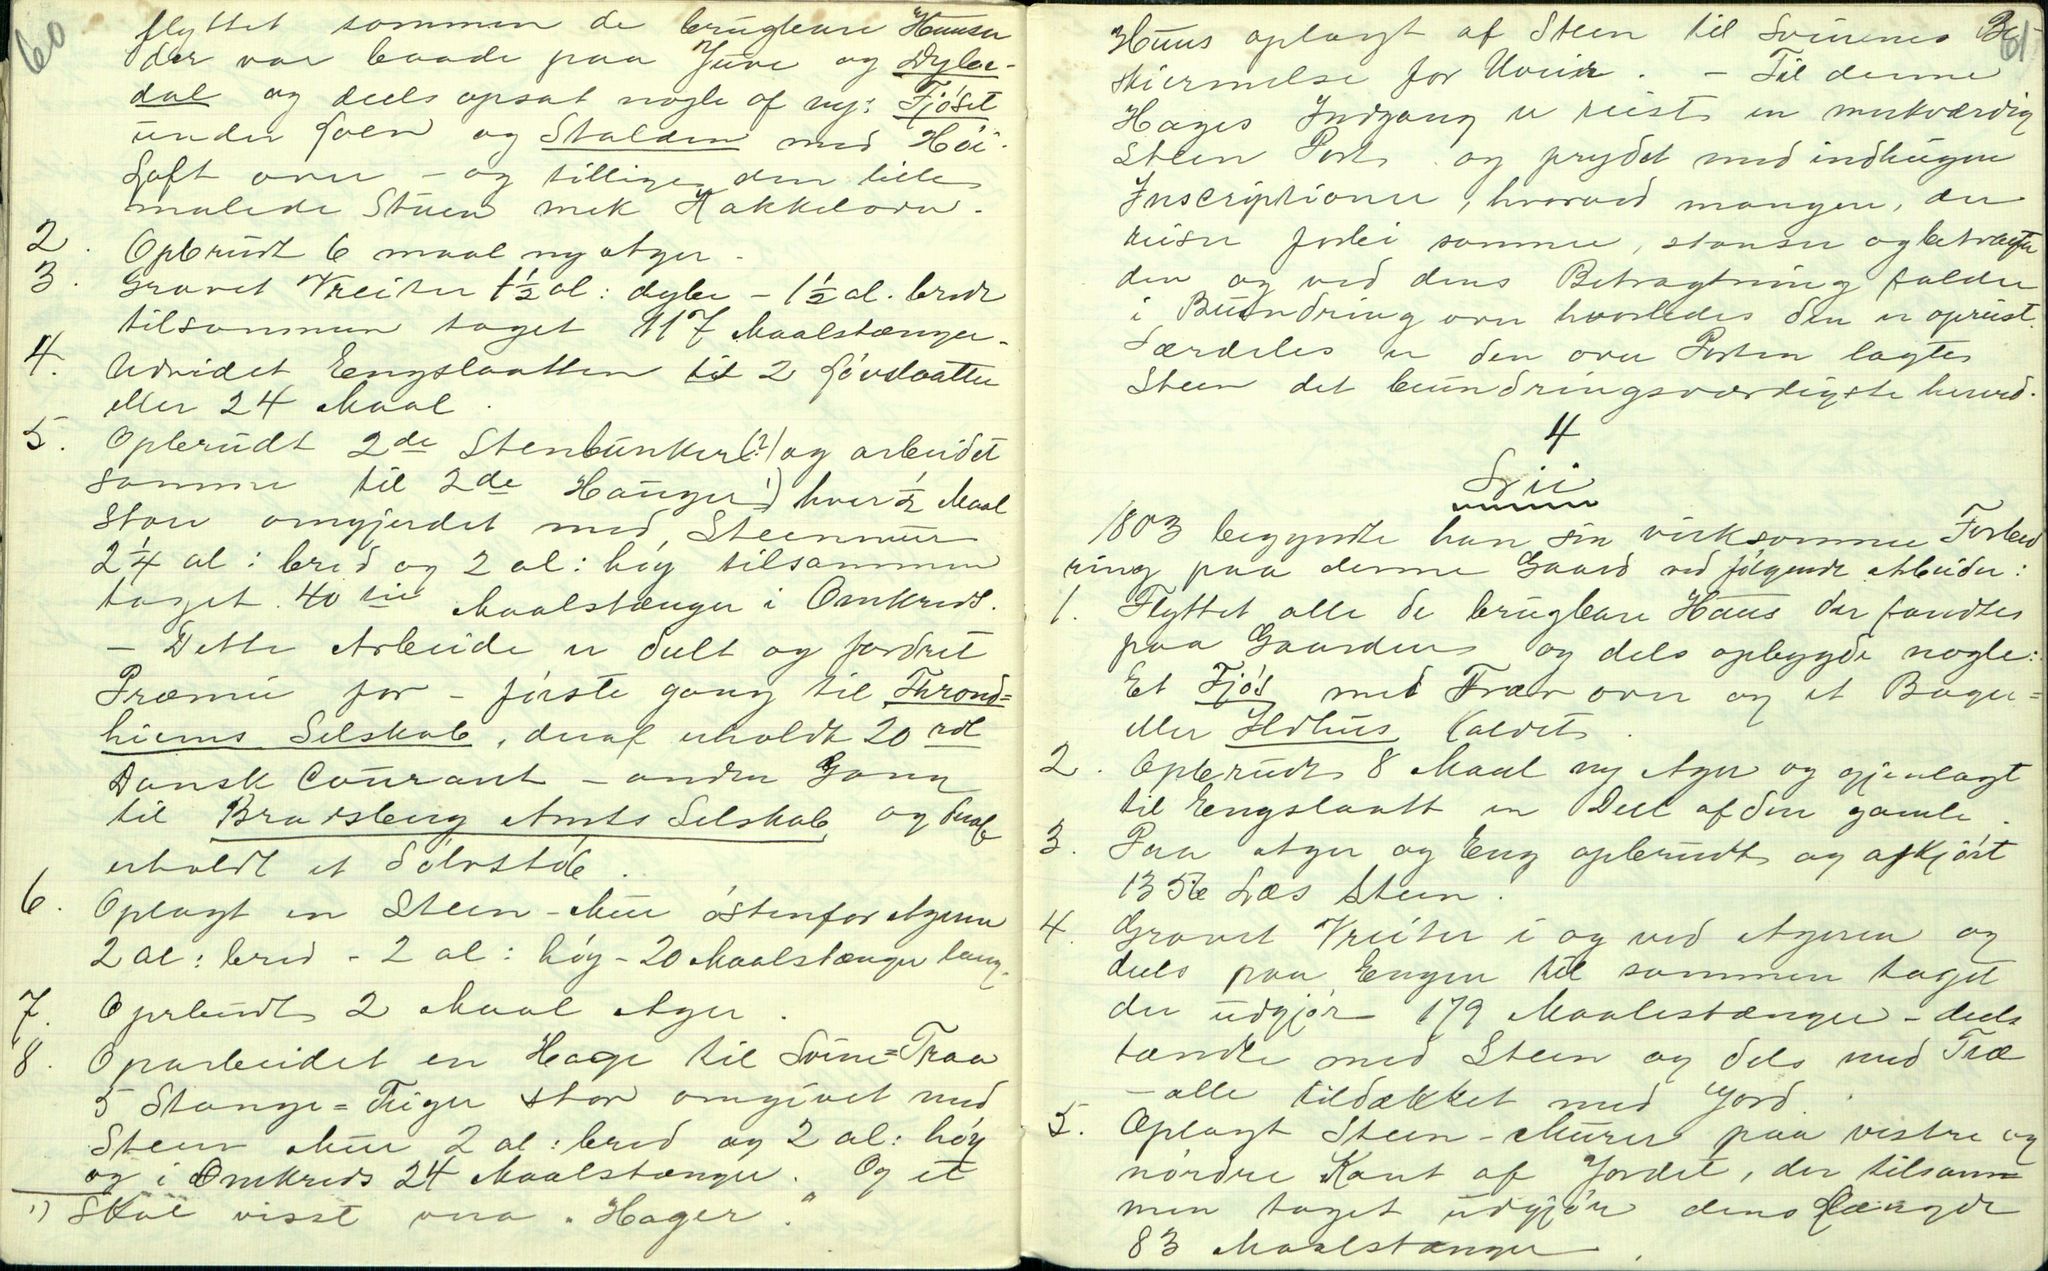 60
flyttet sammen de brugbare Huuser
der var baade paa Juve og Dybe-
dal og deels opsat nogle af ny: Fjöset
under Loen og Stalden med Höi-
Loft over – og tillige den lille
malede Stuen mek Kakkelovn.
2. Opbrudt 6 maal ny Ager.
3. Gravet Vreiter 1½ al: dybe – 1½ al. brede
tilsammen taget 117 Maalstænger.
4. Udvidet Engslaatten til 2 Lövslaatter
eller 24 Maal.
5. Opbrudt 2de Stenbunker(?) og arbeidet
samme til 2de Hauger 1) hver ½ Maal
stor omgjerdet med Steenmuur
2¼ al: bred og 2 al: høy tilsammen
taget 40 tie Maalstænger i Omkreds.
– Dette Arbeide er deelt og fordret
Præmie for – første gang til Thrond=
hiems Selskab, deraf erholdt 20 rdl
Dansk Courant – anden Gang
til Bradsberg Amts Selskab og deraf
erholdt et Sölvstöb.
6. Oplagt en Steen-Muur östenfor Ageren
2 al: bred - 2 al: høy – 20 Maalstænger lang.
7. Opbrudt 2 Maal Ager.
8. Oparbeidet en Hage til Sviine=Traa
5 Stange=Teiger stor omgivet med
Steen Muur 2 al: bred og 2 al: høy
og i Omkreds 24 Maalstænger. Og et
1) Skal visst vera "Hager."
61
Huus oplagt af Steen til Svinenes Be-
skiermelse for Uveir. – Til denne
Hages Indgang er reist en merkværdig
Steen Port og prydet med indhugne
Inscriptioner, hvorved mangen, der
reiser forbi samme, stanser og betragter
den og ved dens Betragtning falder
i Beundring over hvorledes den er opreist.
Særdeles er den over Porten lagte
Steen det beundringsværdigste herved.
4
Lii
1803 begyndte han sin virksomme Forbed
ring paa denne Gaard ved følgende Arbeider:
1. Flyttet alle de brugbare Haus der fandtes
paa Gaarden og dels opbygde nogle:
Et Fjös med Træv over og et Bager=
eller Ildhus kaldet.
2. Opbrudt 8 Maal ny Ager og gjenlagt
til Engslaatt en Deel af den gamle.
3. Paa Ager og Eng opbrudt og afkjört
1356 Læs Steen.
4. Gravet Vreiter i og ved Ageren og
deels paa Engen til sammen taget
der udgjør 179 Maalestænger – deels
tændte med Steen og dels med Træ
– alle tildækket med Jord.
5. Oplagt Steen-Murer paa vestre og
nordre Kant af Jordet, der tilsam=
men taget udgjör dens Længde
83 Maalstænger.